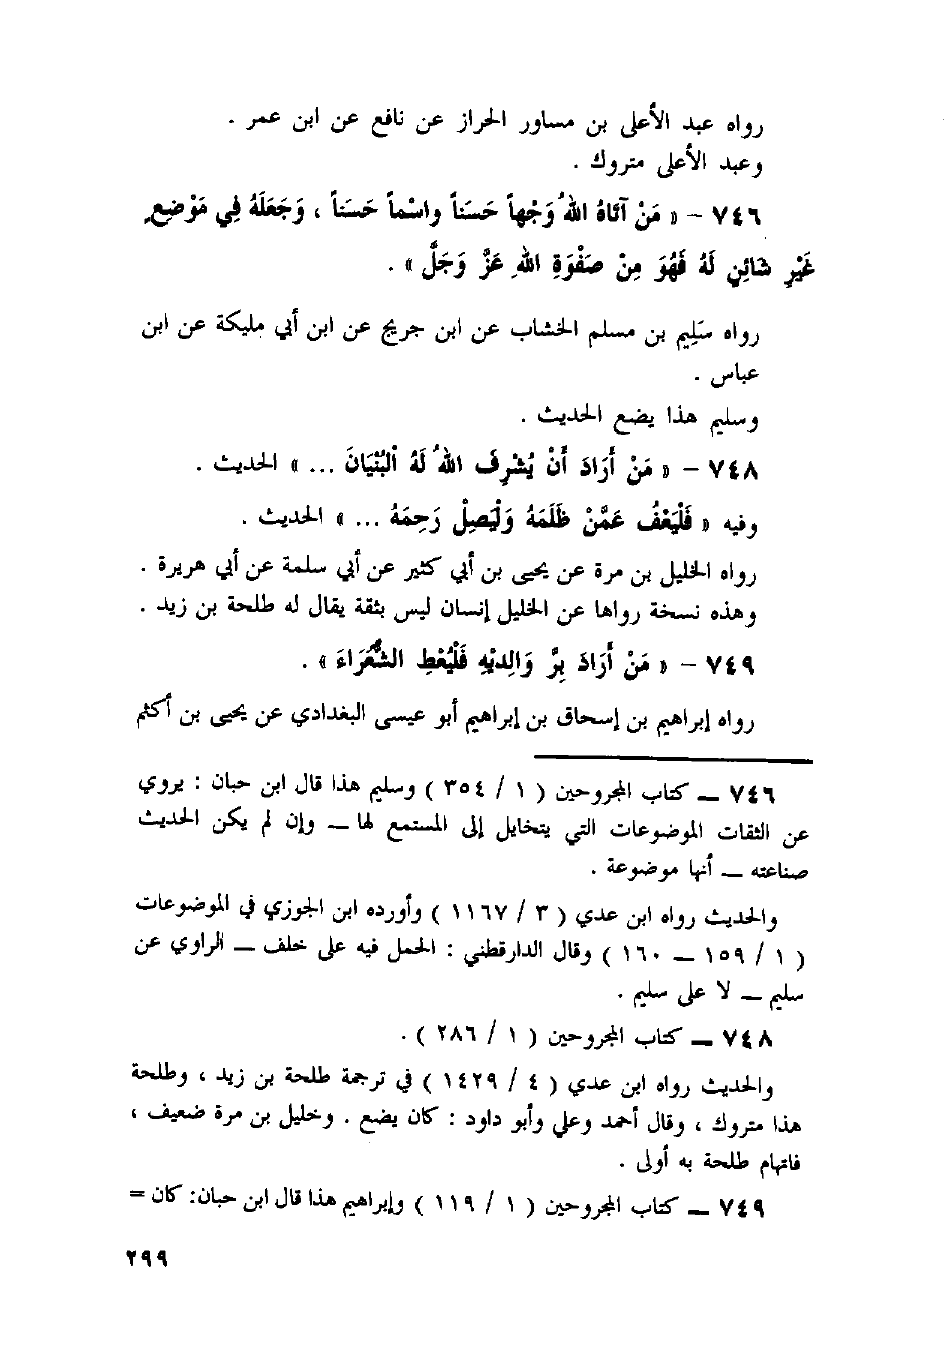 رواه عبد الأعلى بن مساور الحراز عن نافع عن ابن عمر .
وعبد الأعلى متروك .
٧٤٦ – « مَنْ آتَاهُ اللهُ وَجْهاً حَسَناً واسْماً حَسَناً ، وَجَعَلَهُ فِي مَوْضِعٍ
غَيْرِ شَائِنٍ لَهُ فَهُوَ مِنْ صَفْوَةِ اللهِ عَزَّ وَجَلَّ » .
رواه سَلِيم بن مسلم الخشاب عن ابن جريج عن ابن أبي مليكة عن ابن
عباس .
وسليم هذا يضع الحديث .
٧٤٨ – « مَنْ أَرَادَ أَنْ يُشْرِفَ اللهُ لَهُ الْبُنْيَانَ ... » الحديث .
وفيه « فَلْيَعْفُ عَمَّنْ ظَلَمَهُ وَلْيَصِلْ رَحِمَهُ ... » الحديث .
رواه الخليل بن مرة عن يحيى بن أبي كثير عن أبي سلمة عن أبي هريرة .
وهذه نسخة رواها عن الخليل إنسان ليس بثقة يقال له طلحة بن زيد .
٧٤٩ – « مَنْ أَرَادَ بِرَّ وَالِدَيْهِ فَلْيُعْطِ الشُّعَرَاءَ » .
رواه إبراهيم بن إسحاق بن إبراهيم أبو عيسى البغدادي عن يحيى بن أكثم
٧٤٦ ــ كتاب المجروحين ( ١ / ٣٥٤ ) وسليم هذا قال ابن حبان : يروي
عن الثقات الموضوعات التي يتخايل إلى المستمع لها ــ وإن لم يكن الحديث
صناعته ــ أنها موضوعة .
والحديث رواه ابن عدي ( ٣ / ١١٦٧ ) وأورده ابن الجوزي في الموضوعات
( ١ / ١٥٩ ــ ١٦٠ ) وقال الدارقطني : الحمل فيه على خلف ــ الراوي عن
سليم ــ لا على سليم .
٧٤٨ ــ كتاب المجروحين ( ١ / ٢٨٦ ) .
والحديث رواه ابن عدي ( ٤ / ١٤٢٩ ) في ترجمة طلحة بن زيد ، وطلحة
هذا متروك ، وقال أحمد وعلي وأبو داود : كان يضع . وخليل بن مرة ضعيف ،
فاتهام طلحة به أولى .
٧٤٩ ــ كتاب المجروحين ( ١ / ١١٩ ) وإبراهيم هذا قال ابن حبان: كان =
٢٩٩